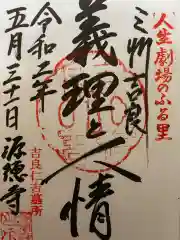 人生劇場のふる里
三州吉良
義理と人情
吉良仁吉墓所
令和二年
五月三十一日 源徳寺